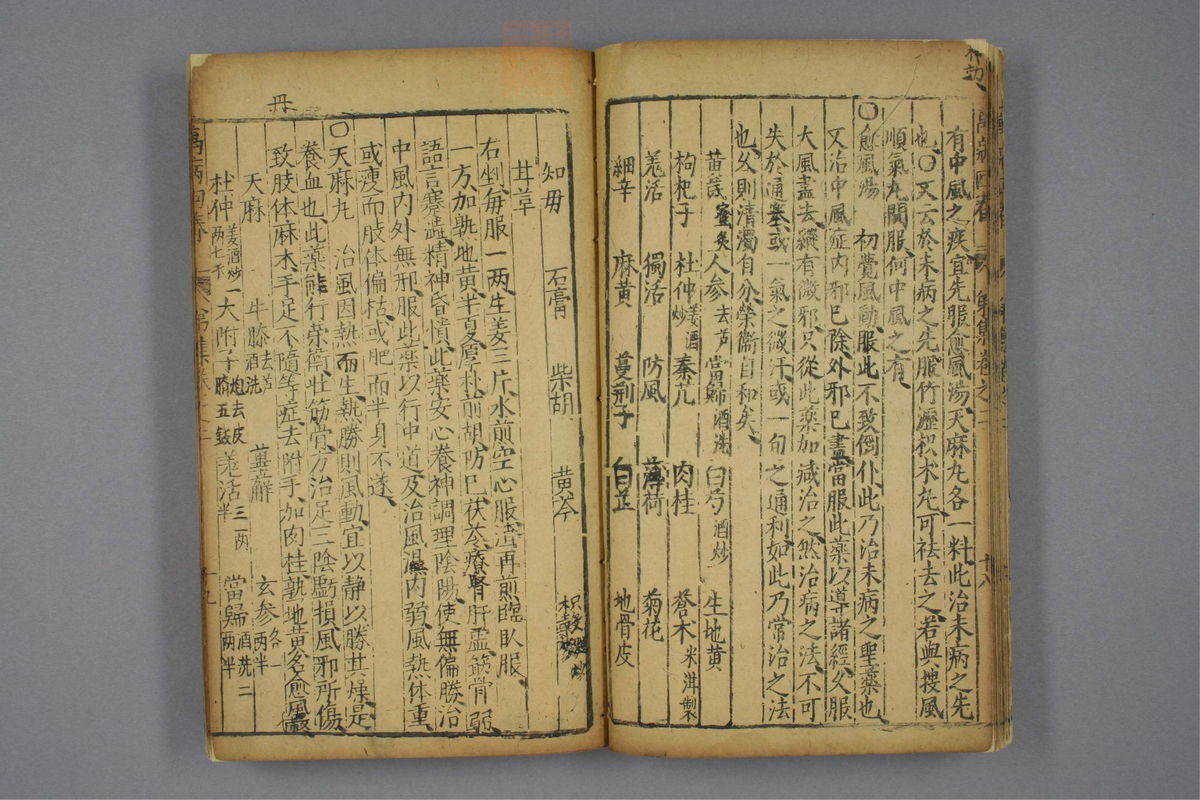 有中風之疾宜先服愈風湯天麻九各一料此治未病之先
也〇又云於未病之先服竹瀝枳朮九可祛去之若與搜風
順氣九間服何中風之有
〇愈風湯 初覺風動服此不致倒仆此乃治未病之聖藥也
又治中風症內邪已除外邪已盡當服此藥以導諸經久服
大風盡去縱有微邪只從此藥加減治之然治病之法不可
失於通塞或一氣之微汗或一旬之通利如此乃常治之法
也久則清濁自分榮衛自和矣
黃芪蜜炙 人參去芦 當歸酒洗 白芍酒炒 生地黃
枸杞子 杜仲姜酒炒 秦艽 肉桂 蒼朮米泔製
羗活 獨活 防風 薄荷 菊花
細辛 麻黃 蔓荊子 白芷 地骨皮
知母 石膏 柴胡 黃芩 枳殼
甘草
右剉每服一两生姜三片水煎空心服渣再煎臨臥服
一方加熟地黃半夏厚朴前胡防已茯苓療腎肝虛筋骨弱
語言蹇澁精神昏憒此藥安心養神調理陰陽使無偏勝治
中風內外無邪服此藥以行中道及治風濕內弱風熱体重
或瘦而肢体偏枯或肥而半身不遂
〇天麻九 治風因熱而生熱勝則風動宜以静以勝其燥是
養血也此藥能行榮衛壯筋骨方治足三陰虧損風邪所傷
致肢体麻木手足不隨等症去附子加肉桂熟地黃名愈風
天麻 牛膝去芦酒洗 萆薢三两 玄參各一两半
杜仲姜酒炒两七錢 大附子炮去皮臍五錢 羗活半 當歸酒洗二两半